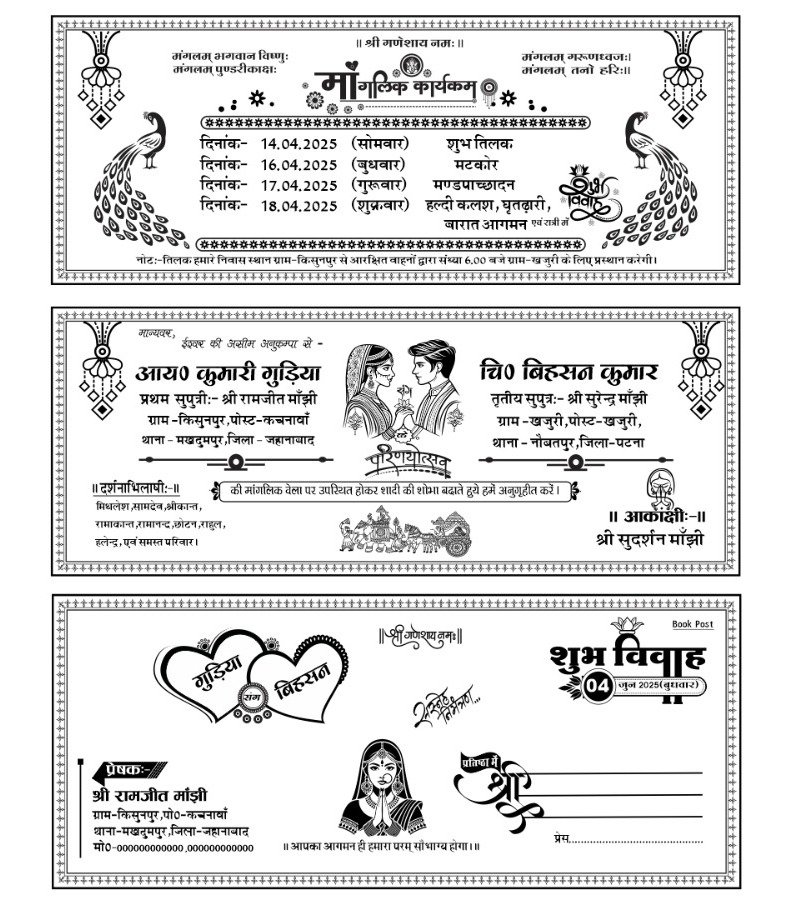 ॥ श्री गणेशाय नमः॥
मंगलम् भगवान विष्णुः
मंगलम् पुण्डरीकाक्षः
मंगलम् गरूणध्वजः।
मंगलम् तनो हरिः॥
मांगलिक कार्यकम्
दिनांक:- 14.04.2025 (सोमवार) शुभ तिलक
दिनांक:- 16.04.2025 (बुधवार) मटकोर
दिनांक:- 17.04.2025 (गुरूवार) मण्डपाच्छादन
दिनांक:- 18.04.2025 (शुक्रवार) हल्दी कलश, घृतढ़ारी,
बारात आगमन एवं रात्री में
शुभ विवाह
नोट:-तिलक हमारे निवास स्थान ग्राम-किसुनपुर से आरक्षित वाहनों द्वारा संध्या 6.00 बजे ग्राम-खजुरी के लिए प्रस्थान करेगी।
मान्यवर,
ईश्वर की असीम अनुकम्पा से -
आय० कुमारी गुड़िया
प्रथम सुपुत्री:- श्री रामजीत माँझी
ग्राम-किसुनपुर,पोस्ट-कचनावाँ
थाना - मखदुमपुर,जिला - जहानाबाद
चि० बिहसन कुमार
तृतीय सुपुत्र:- श्री सुरेन्द्र माँझी
ग्राम - खजुरी,पोस्ट-खजुरी,
थाना - नौबतपुर,जिला-पटना
परिणयोत्सव
की मांगलिक वेला पर उपस्थित होकर शादी की शोभा बढाते हुये हमें अनुगृहीत करें ।
॥ दर्शनाभिलाषी:-॥
मिथलेश,सामदेव,श्रीकान्त,
रामाकान्त,रामानन्द,छोटन,राहुल,
हलेन्द्र,एवं समस्त परिवार।
॥ आकांक्षी:-॥
श्री सुदर्शन माँझी
Book Post
॥श्री गणेशाय नमः॥
गुड़िया
संग
बिहसन
शुभ विवाह
04 जुन 2025(बुधवार)
सस्नेह
निमंत्रण...
प्रेषक:-
श्री रामजीत माँझी
ग्राम-किसुनपुर,पो०-कचनावाँ
थाना-मखदुमपुर,जिला-जहानाबाद
मो०-000000000000 ,000000000000
॥ आपका आगमन ही हमारा परम् सौभाग्य होगा।॥
प्रतिष्ठा में
श्री
प्रेस......................................